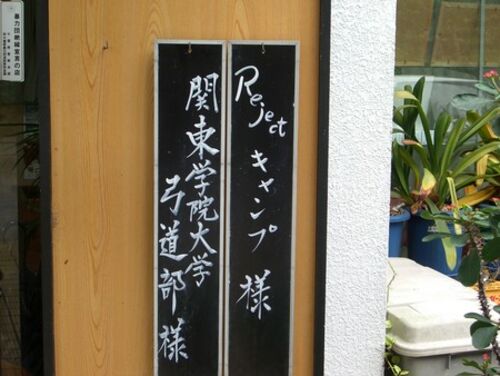 Reject キャンプ 様
関東学院大学
弓道部 様
暴力団絶縁宣言の店